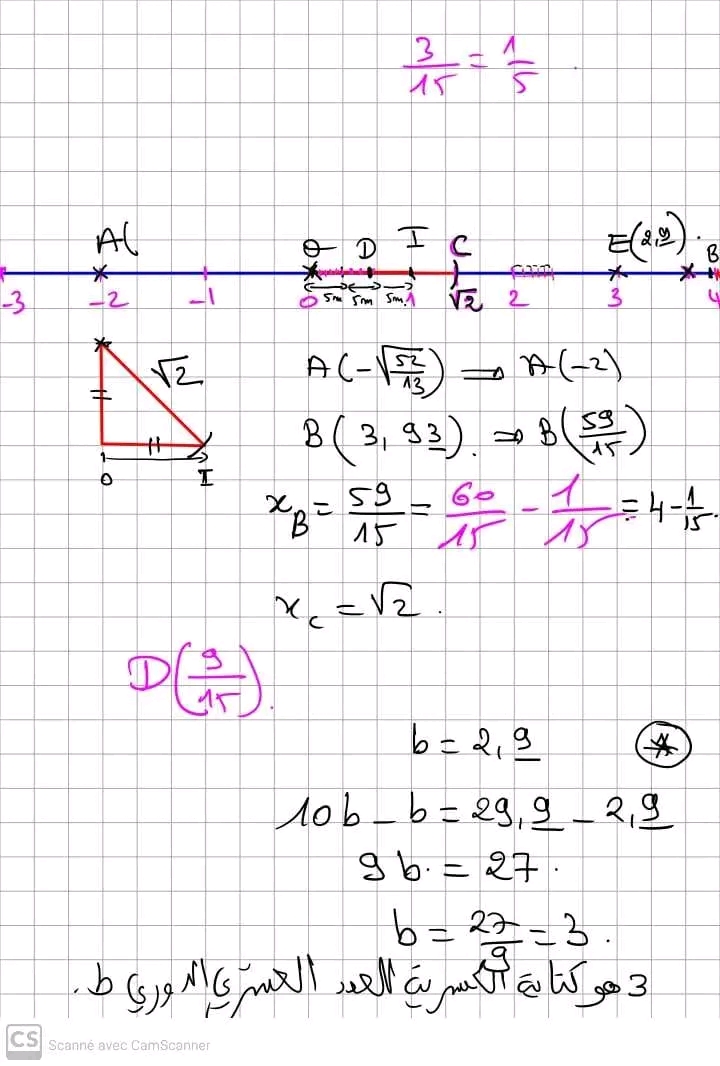 3/15 = 1/5
A( O D I C E(2,9) . B
-3 -2 -1 0 5m 5m 5m 1 √2 2 3 4
√2
O I
A(-√(52/13)) ⟹ A(-2)
B(3,93). ⟹ B(59/15)
x_B = 59/15 = 60/15 - 1/15 = 4 - 1/15.
x_c = √2.
D(9/15).
b = 2,9
10b - b = 29,9 - 2,9
9b. = 27.
b = 27/9 = 3.
3 هو كتابة الكسرية للعدد العشري الدوري b.
CS Scanné avec CamScanner